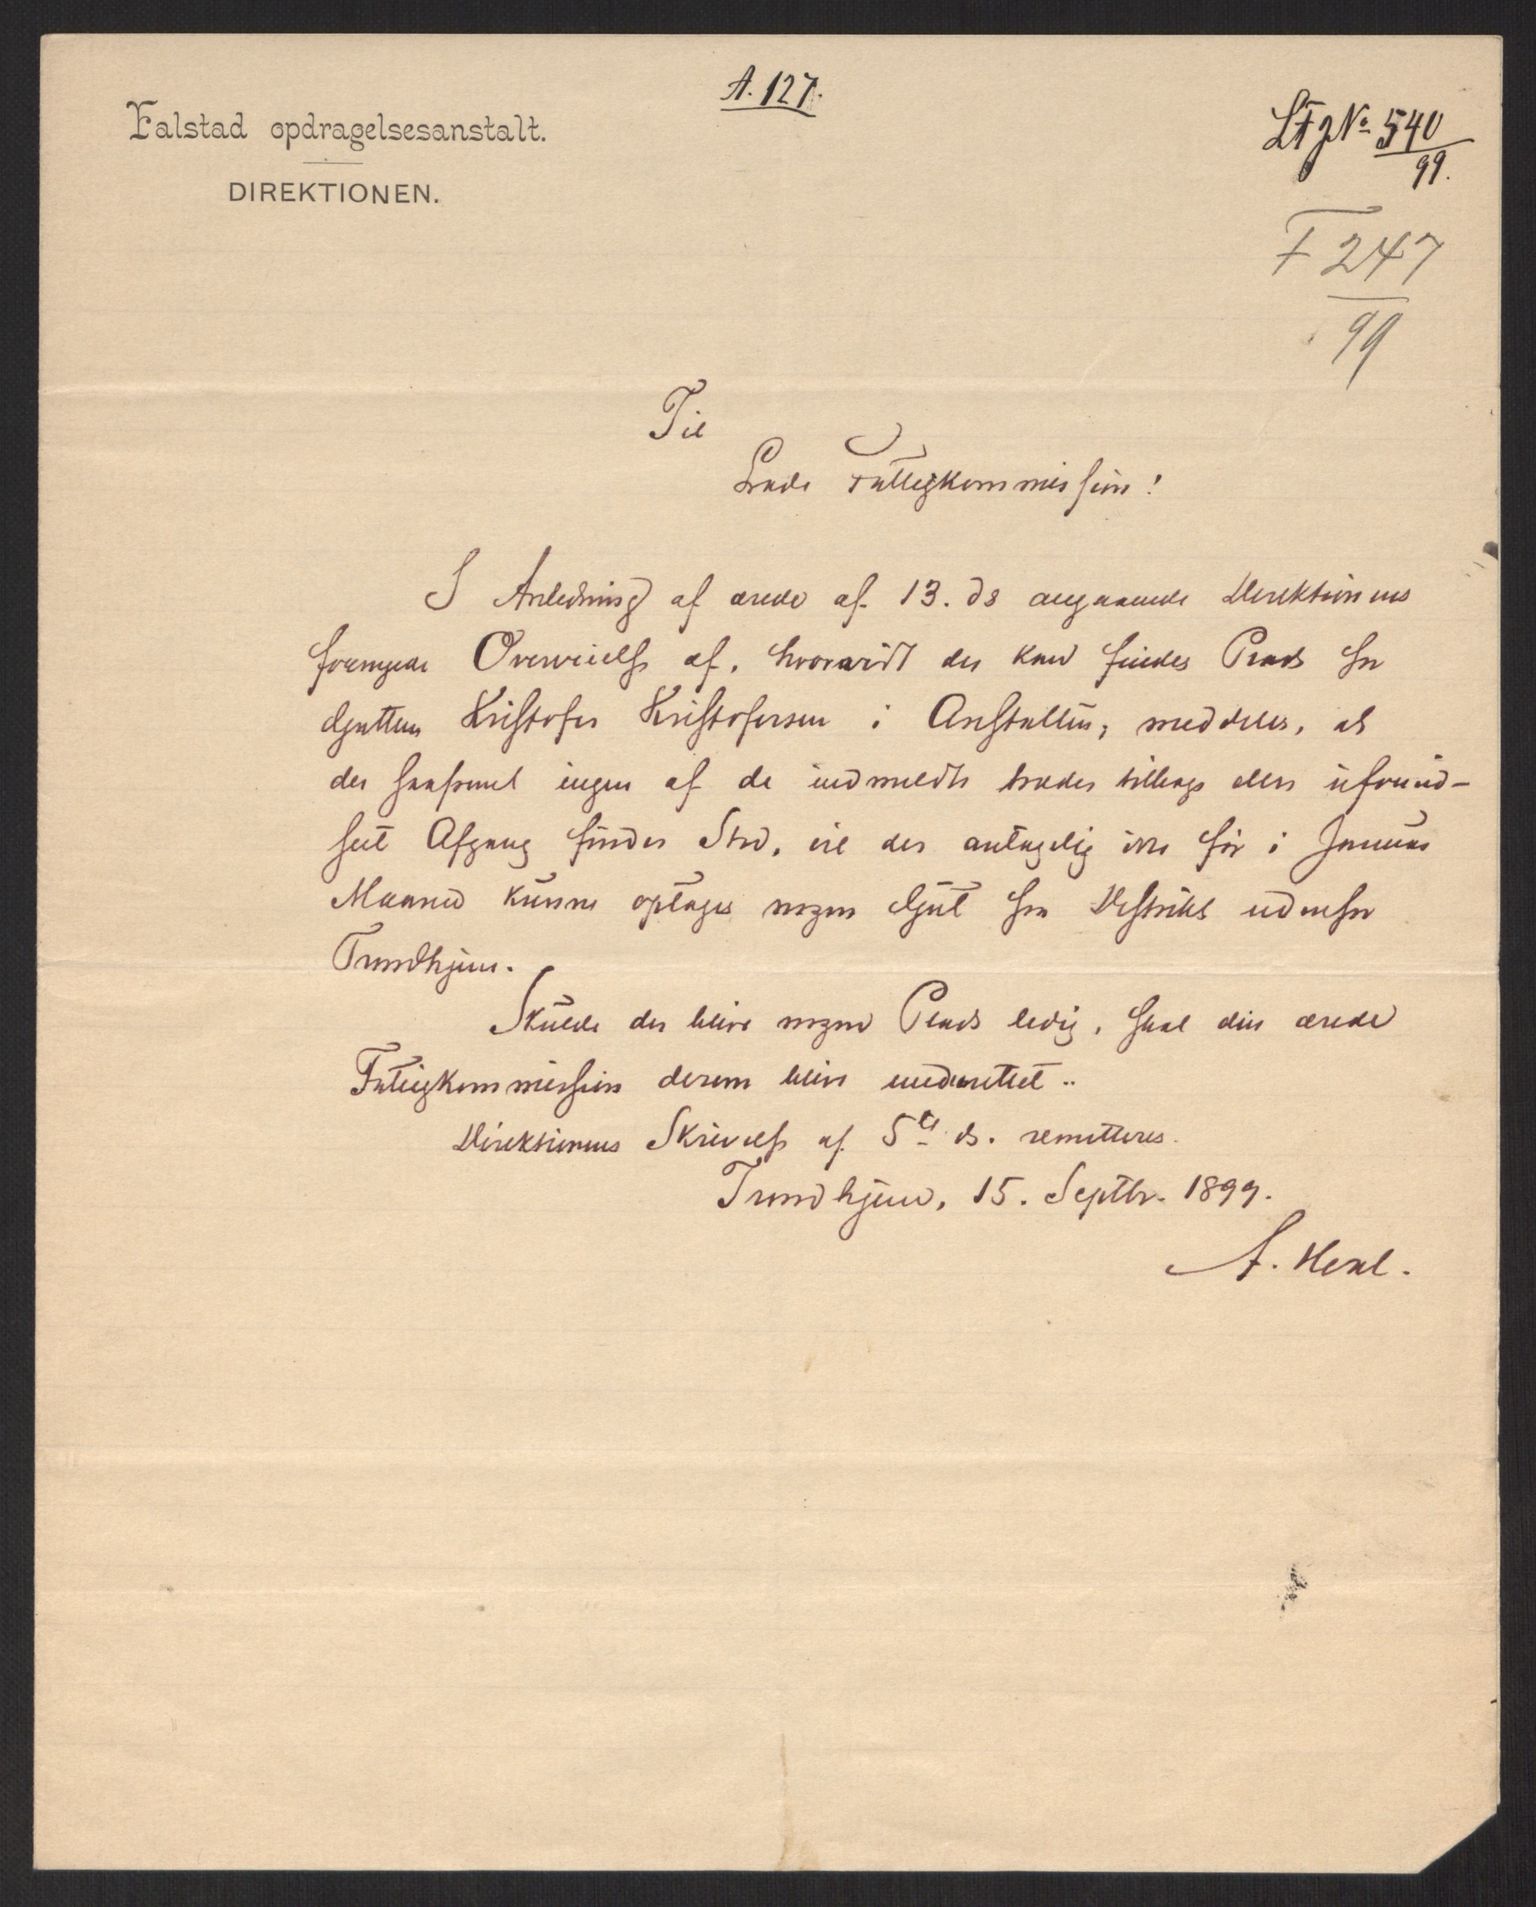 A. 127.
Falstad opdragelsesanstalt.
DIREKTIONEN.
LF J No 540
99.
F 247
99
Til
Lade Fattigkommission!
I Anledning af ærede af 13. ds angaaende Direktionens
forenede af, hvorvidt der kan findes Plads for
Gutten Kristofer Kristofersen i Anstalten, meddeles, at
der saafremt ingen af de indmeldte træder tilbage eller uforud-
seet Afgang finder Sted, vil der antagelig ikke før i Januar
Maaned kunne optages nogen Gut fra Distrikt udenfor
Trondhjem.
Skulde der blive nogen Plads ledig, skal den ærede
Fattigkommission derom blive underrettet.
Direktionens Skrivelse af 5te ds. remitteres.
Trondhjem, 15. Septbr. 1899.